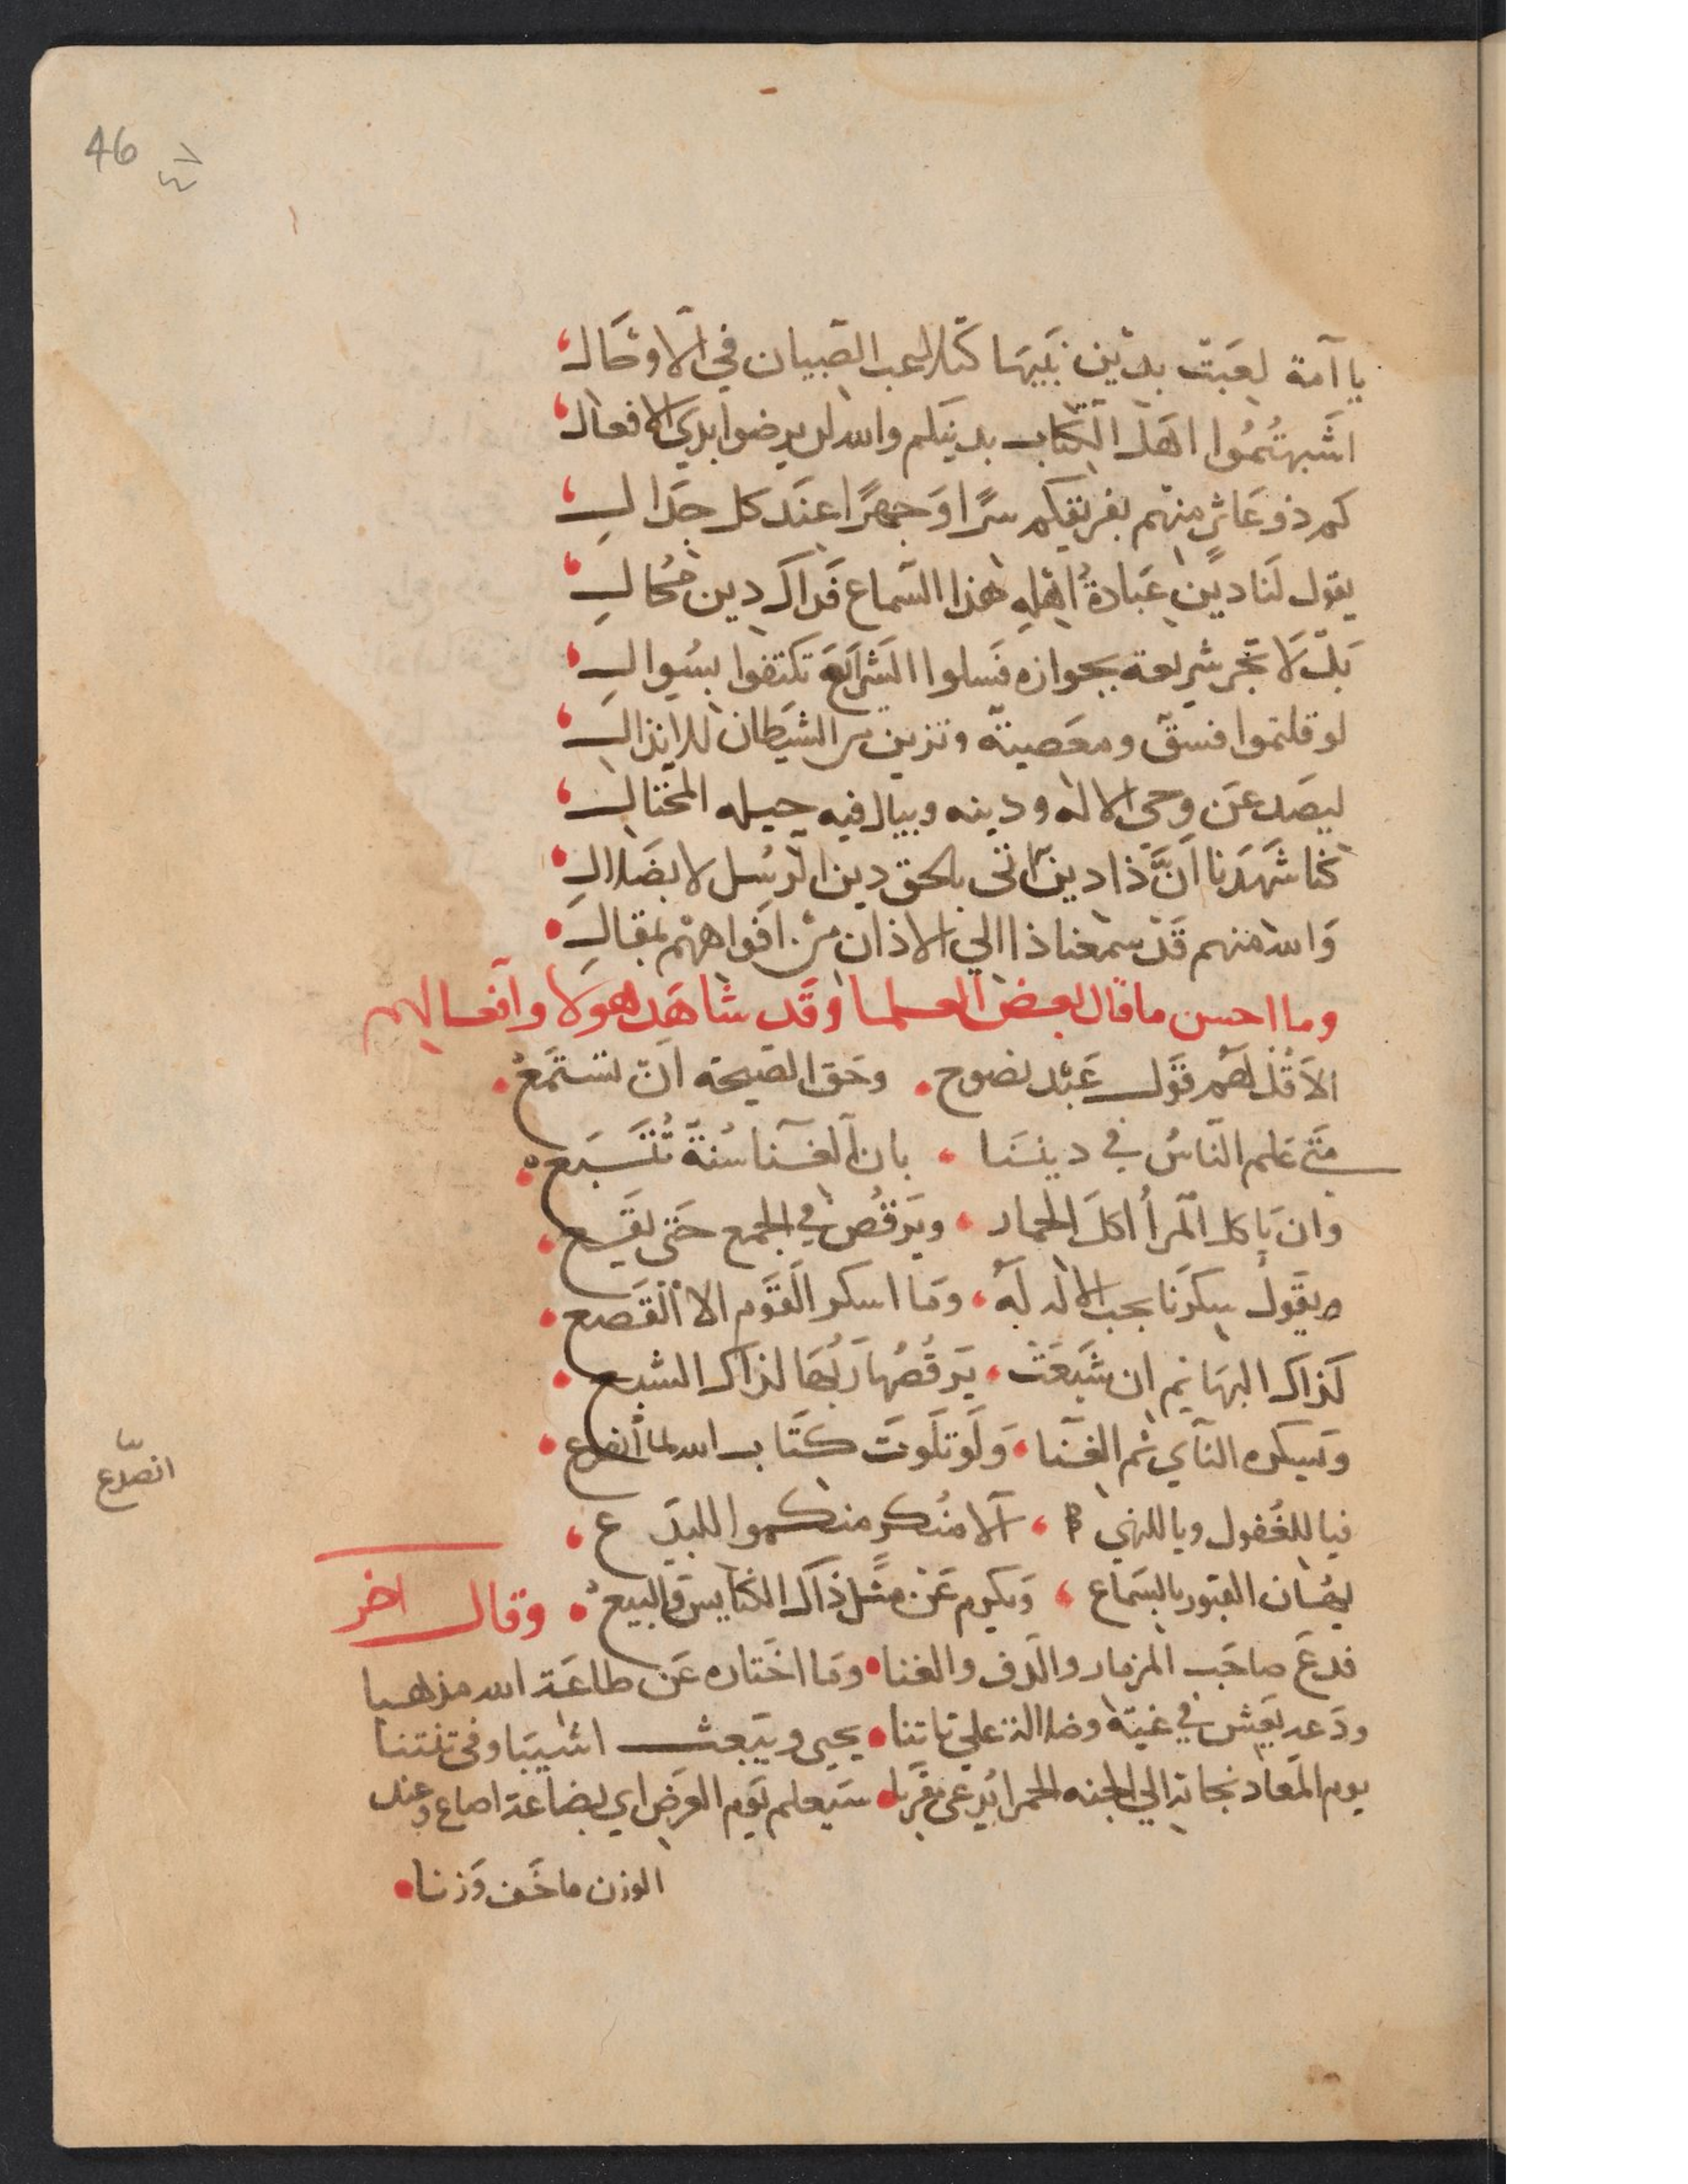 46
٤٦
يا آمة لعبت بدين نبيها كتلاعب الصبيان في الاوحال
اشبهتموا اهل الكتاب بدينكم والله لن يرضوا بذي الافعال
كم ذو عاثر منهم بفريقكم سرا وجهرا عند كل جدال
يقول لنا دين عبادة اهله هذا السماع فذاك دين محال
بل لا تجر شريعة بجوازه فسلوا الشرايع تكتفوا بسوال
لو قلتموا فسق ومعصية وتزين من الشيطان للانذال
ليصد عن وحي الاله ودينه وينال فيه حيله المحتال
كنا شهدنا ان ذا دين اتى بالحق دين الرسل لا بضلال
والله منهم قد سمعنا ذا الي الاذان من افواههم بمقال
وما احسن ما قال بعض العلما وقد شاهد هولا وافعالهم
الا قل لهم قول عبد نصوح وحق النصيحة ان تستمع
متى علم الناس في ديننا بان الغنا سنة تتبع
وان ياكل المرأ اكل الحمار ويرقص في الجمع حتى يقع
ويقول سكرنا بحب الاله له وما اسكر القوم الا القصع
كذاك البهايم ان شبعت يرقصها ربها لذاك الشبع
وتسكره الناي ثم الغنا ولو تلوت كتاب الله لما انصدع
انصدع
فيا للغفول ويا للنهي الا منكر منكموا للبدع
يهان القبور بالسماع ويكرم عن مثل ذاك الكنايس والبيع وقال اخر
فدع صاحب المزمار والدف والغنا وما اختاره عن طاعة الله مذهبا
ودعه يعش في غيه وضلالة علي تاتنا يحيى ويبعث اشيبا وفي تنتنا
يوم المعاد نجاته الي الجنه الحمرا يدعى مقربا سيعلم يوم العرض اي بضاعة اضاع وعند
الوزن ما خف وزنا